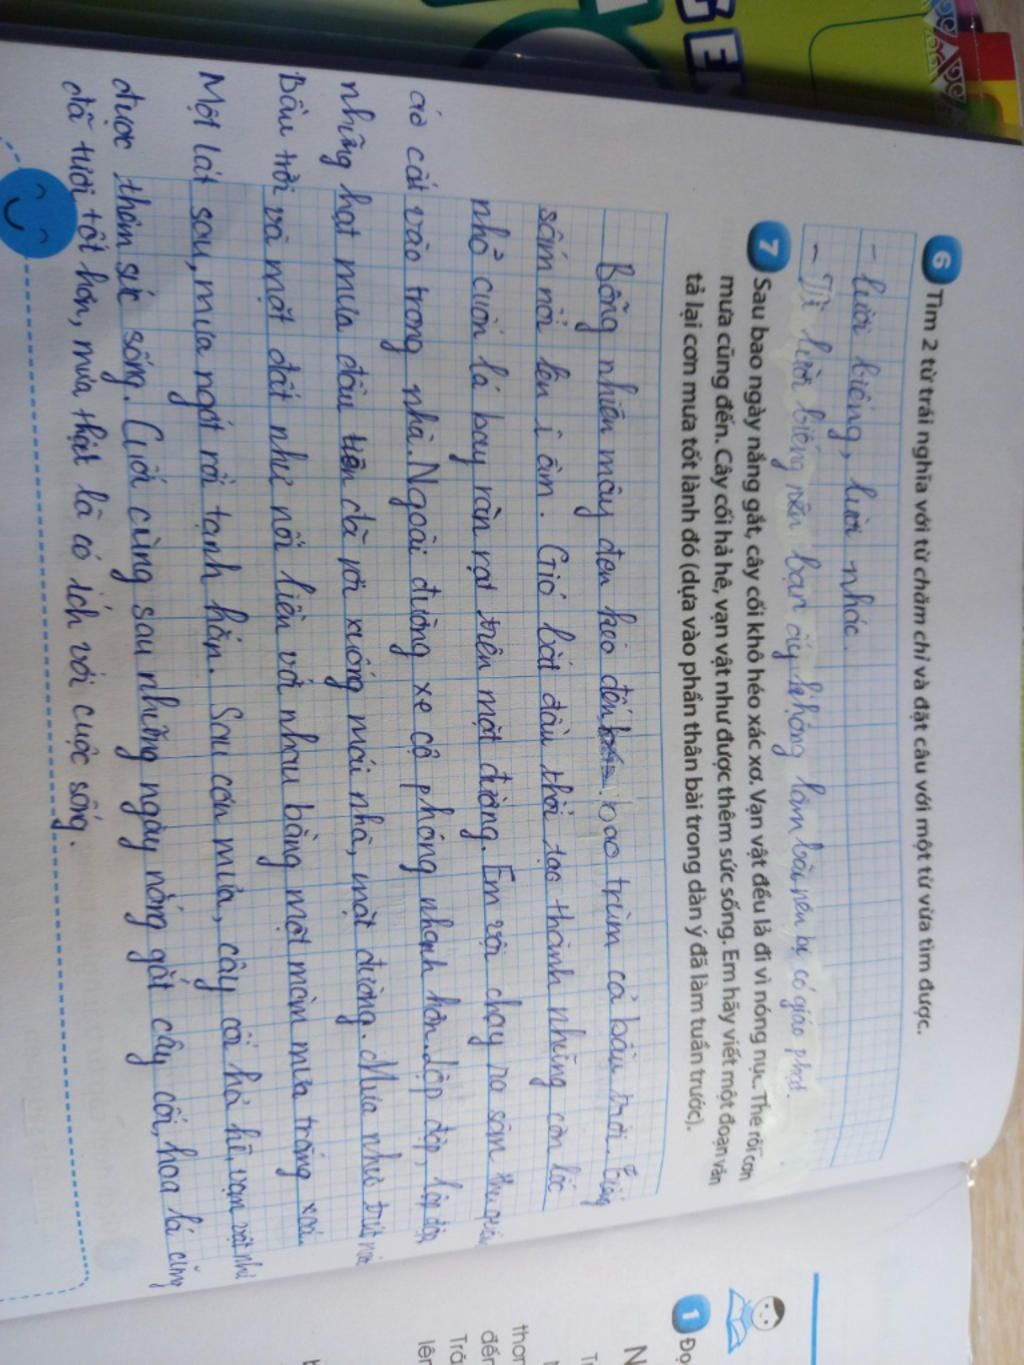 GEN
6 Tìm 2 từ trái nghĩa với từ chăm chỉ và đặt câu với một từ vừa tìm được.
- lười biếng, lười nhác.
- Vì lười biếng nên bạn ấy không làm bài nên bị cô giáo phạt.
7 Sau bao ngày nắng gắt, cây cối khô héo xác xơ. Vạn vật đều lả đi vì nóng nực. Thế rồi cơn
mưa cũng đến. Cây cối hả hê, vạn vật như được thêm sức sống. Em hãy viết một đoạn văn
tả lại cơn mưa tốt lành đó (dựa vào phần thân bài trong dàn ý đã làm tuần trước).
Bỗng nhiên mây đen kéo đến bao trùm cả bầu trời. Tiếng
sấm nổi lên ì ầm. Gió bắt đầu thổi tạo thành những cơn lốc
nhỏ cuốn lá bay ràn rạt trên mặt đường. Em vội chạy ra sân thu quần
áo cất vào trong nhà. Ngoài đường xe cộ phóng nhanh hơn. Lộp độp, lộp độp
những hạt mưa đầu tiên đã rơi xuống mái nhà, mặt đường. Mưa như trút nước
Bầu trời và mặt đất như nối liền với nhau bằng một màn mưa trắng xoá.
Một lát sau, mưa ngớt rồi tạnh hẳn. Sau cơn mưa, cây cối hả hê, vạn vật như
được thêm sức sống. Cuối cùng sau những ngày nắng gắt cây cối, hoa lá cũng
đã tươi tốt hơn, mưa thật là có ích với cuộc sống.
1 Đọ
N
Tr
thơn
đến
Trả
lên